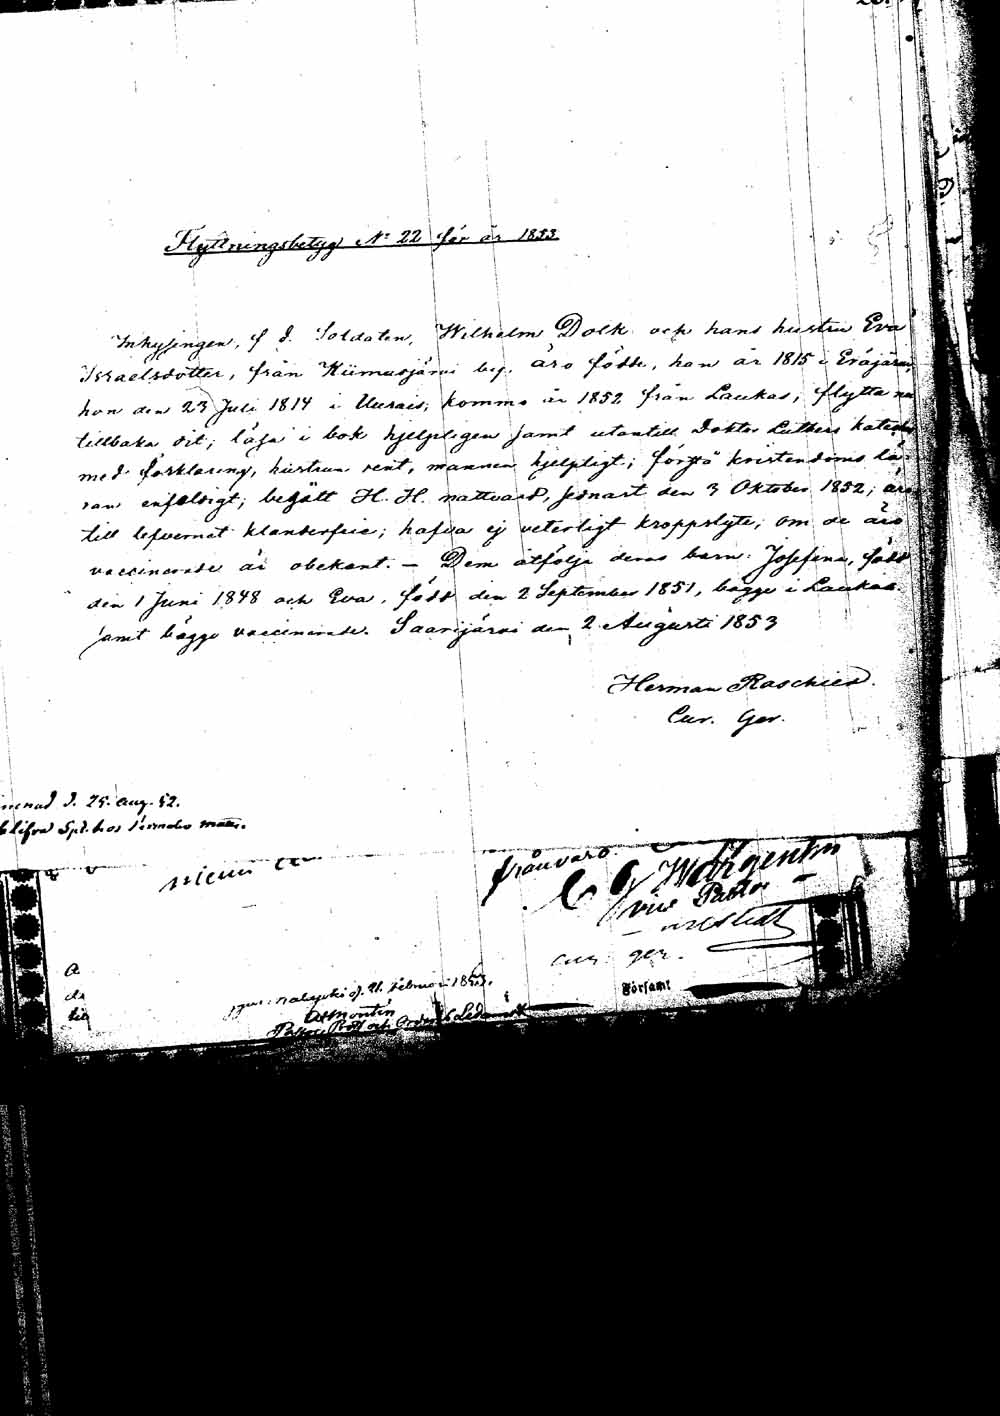 Flyttningsbetyg No 22 för år 1853.
Inhysingen, f. d. Soldaten, Wilhelm Dolk och hans hustru Eva
Israelsdotter, från Kiimasjärvi beg. äro födde, han år 1815 i Eräjärvi
hon den 23 Juli 1814 i Uurais; komma år 1852 från Laukas; flytta nu
tillbaka dit; läsa i bok hjelpligen samt utantill Doktor Luthers kateches
med förklaring, hustrun rent, mannen hjelpligt; förstå kristendoms lä-
ran enfaldigt; begått H. H. nattvard, sednast den 3 Oktober 1852; äro
till lefvernet klanderfria; hafva ej veterligt kroppslyte; om de äro
vaccinerade är obekant. — Dem åtfölja deras barn: Josefina, född
den 1 Juni 1848 och Eva, född den 2 September 1851, bägge i Laukas.
samt bägge vaccinerade. Saarijärvi den 2 Augusti 1853
Herman Raschier.
Cur. Ger.
d. 25. aug. 52.
blifva hos
frånvaro
C G Wargentin
vice Pastor
cur. ger.
d. 21. februari 1853.
Pastor, Prost och
Församl